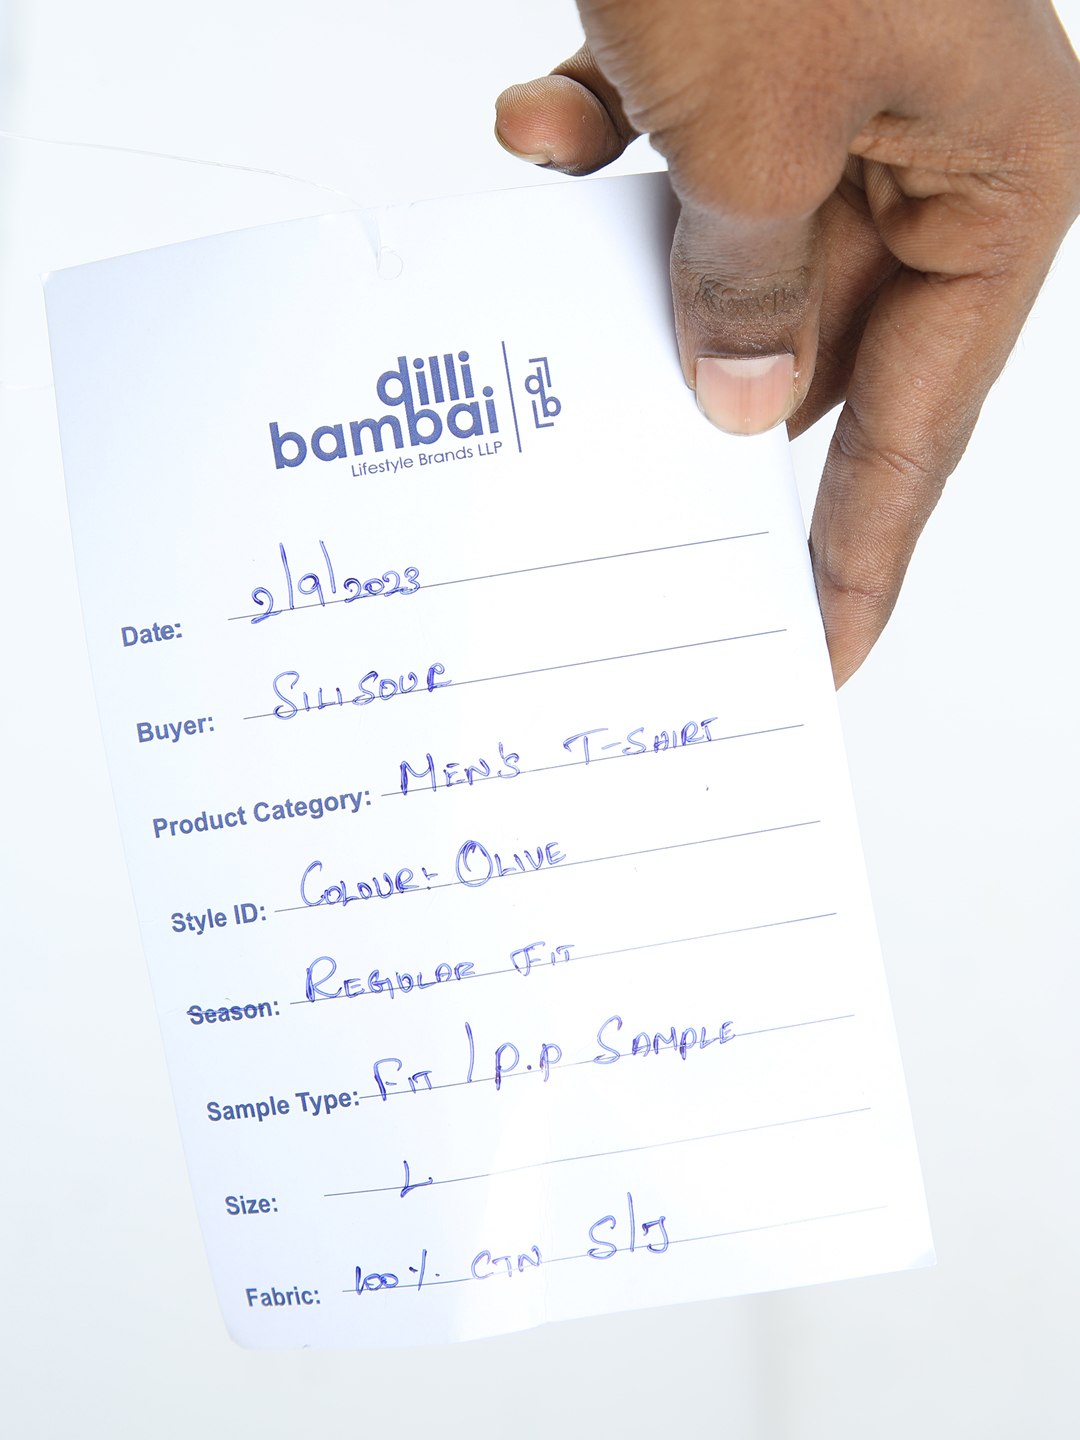 dilli
bambai
Lifestyle Brands LLP
d
b
Date: 2/9/2023
Buyer: SILISOUR
Product Category: MEN'S T-SHIRT
Style ID: COLOUR:- OLIVE
Season: REGULAR FIT
Sample Type: FIT / P.P SAMPLE
Size: L
Fabric: 100% CTN S/J